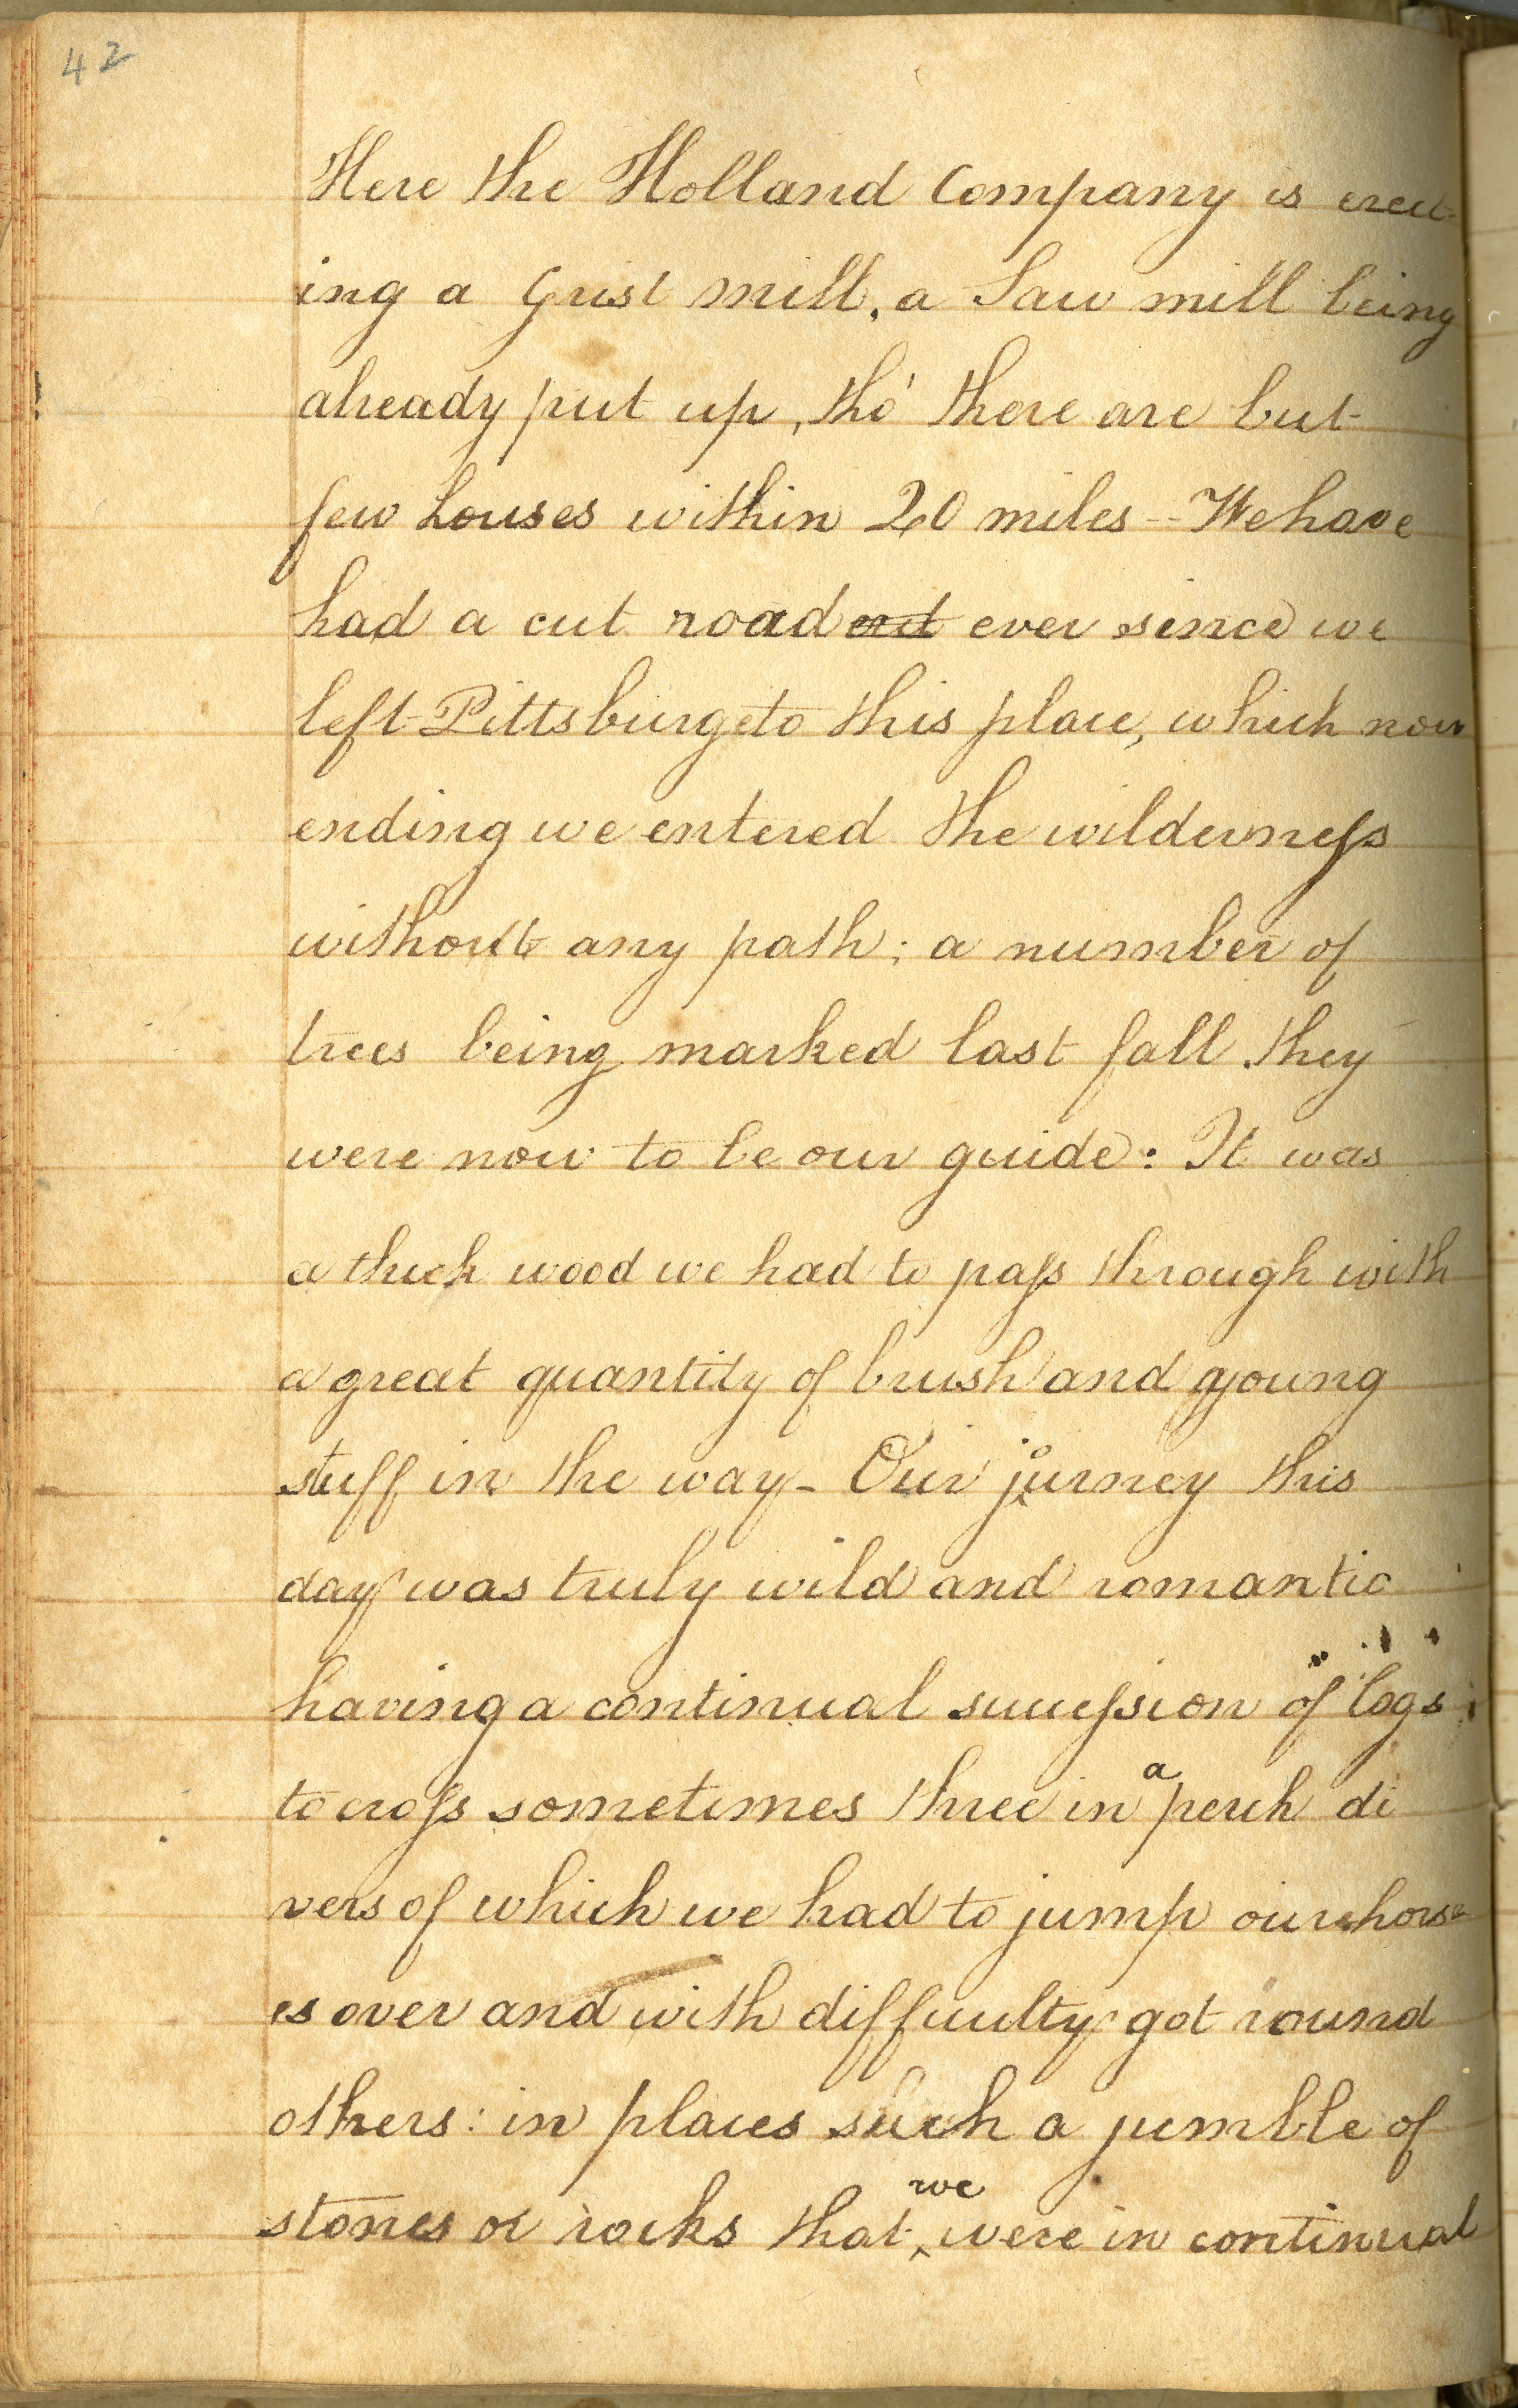 42
Here the Holland Company is erect-
ing a Grist mill, a Saw mill being
already put up, tho' there are but
few houses within 20 miles -- We have
had a cut road end ever since we
left Pittsburg to this place, which now
ending we entered the wilderneſs
without any path; a number of
trees being marked last fall they
were now to be our guide: It was
a thick wood we had to paſs through with
a great quantity of brush and young
stuff in the way - Our journey this
day was truly wild and romantic
having a continual succeſsion of logs
to croſs sometimes three in a perch di
vers of which we had to jump our hors
es over and with difficulty got round
others: in places such a jumble of
stones or rocks that we were in continual